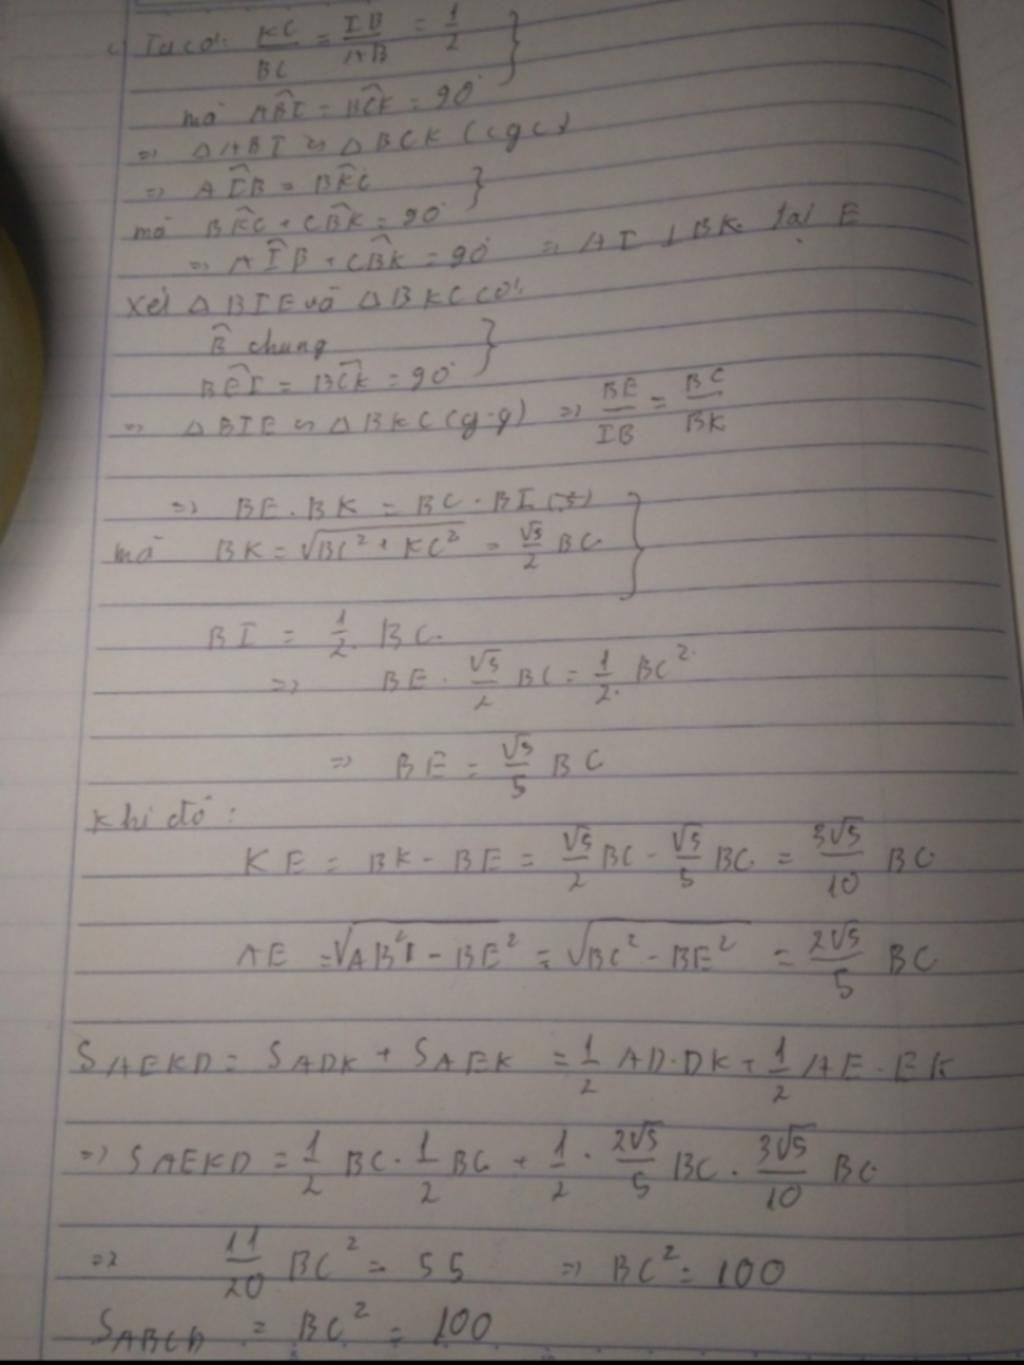 c, Ta có: KC/BC = IB/AB = 1/2 }
mà ABI = BCK = 90°
=> △ABI ∽ △BCK (cgc)
=> AIB = BKC }
mà BKC + CBK = 90°
=> AIB + CBK = 90° => AI ⊥ BK tại E
Xét △BIE và △BKC có:
B chung }
BEI = BCK = 90°
=> △BIE ∽ △BKC (g-g) => BE/IB = BC/BK
=> BE . BK = BC . BI (*) }
mà BK = √(BC² + KC²) = √5/2 BC
BI = 1/2 BC.
=> BE . √5/2 BC = 1/2 BC²
=> BE = √5/5 BC
Khi đó:
KE = BK - BE = √5/2 BC - √5/5 BC = 3√5/10 BC
AE = √(AB² - BE²) = √(BC² - BE²) = 2√5/5 BC
S AEKD = S ADK + S AEK = 1/2 AD.DK + 1/2 AE . EK
=> S AEKD = 1/2 BC . 1/2 BC + 1/2 . 2√5/5 BC . 3√5/10 BC
=> 11/20 BC² = 55 => BC² = 100
S ABCD = BC² = 100